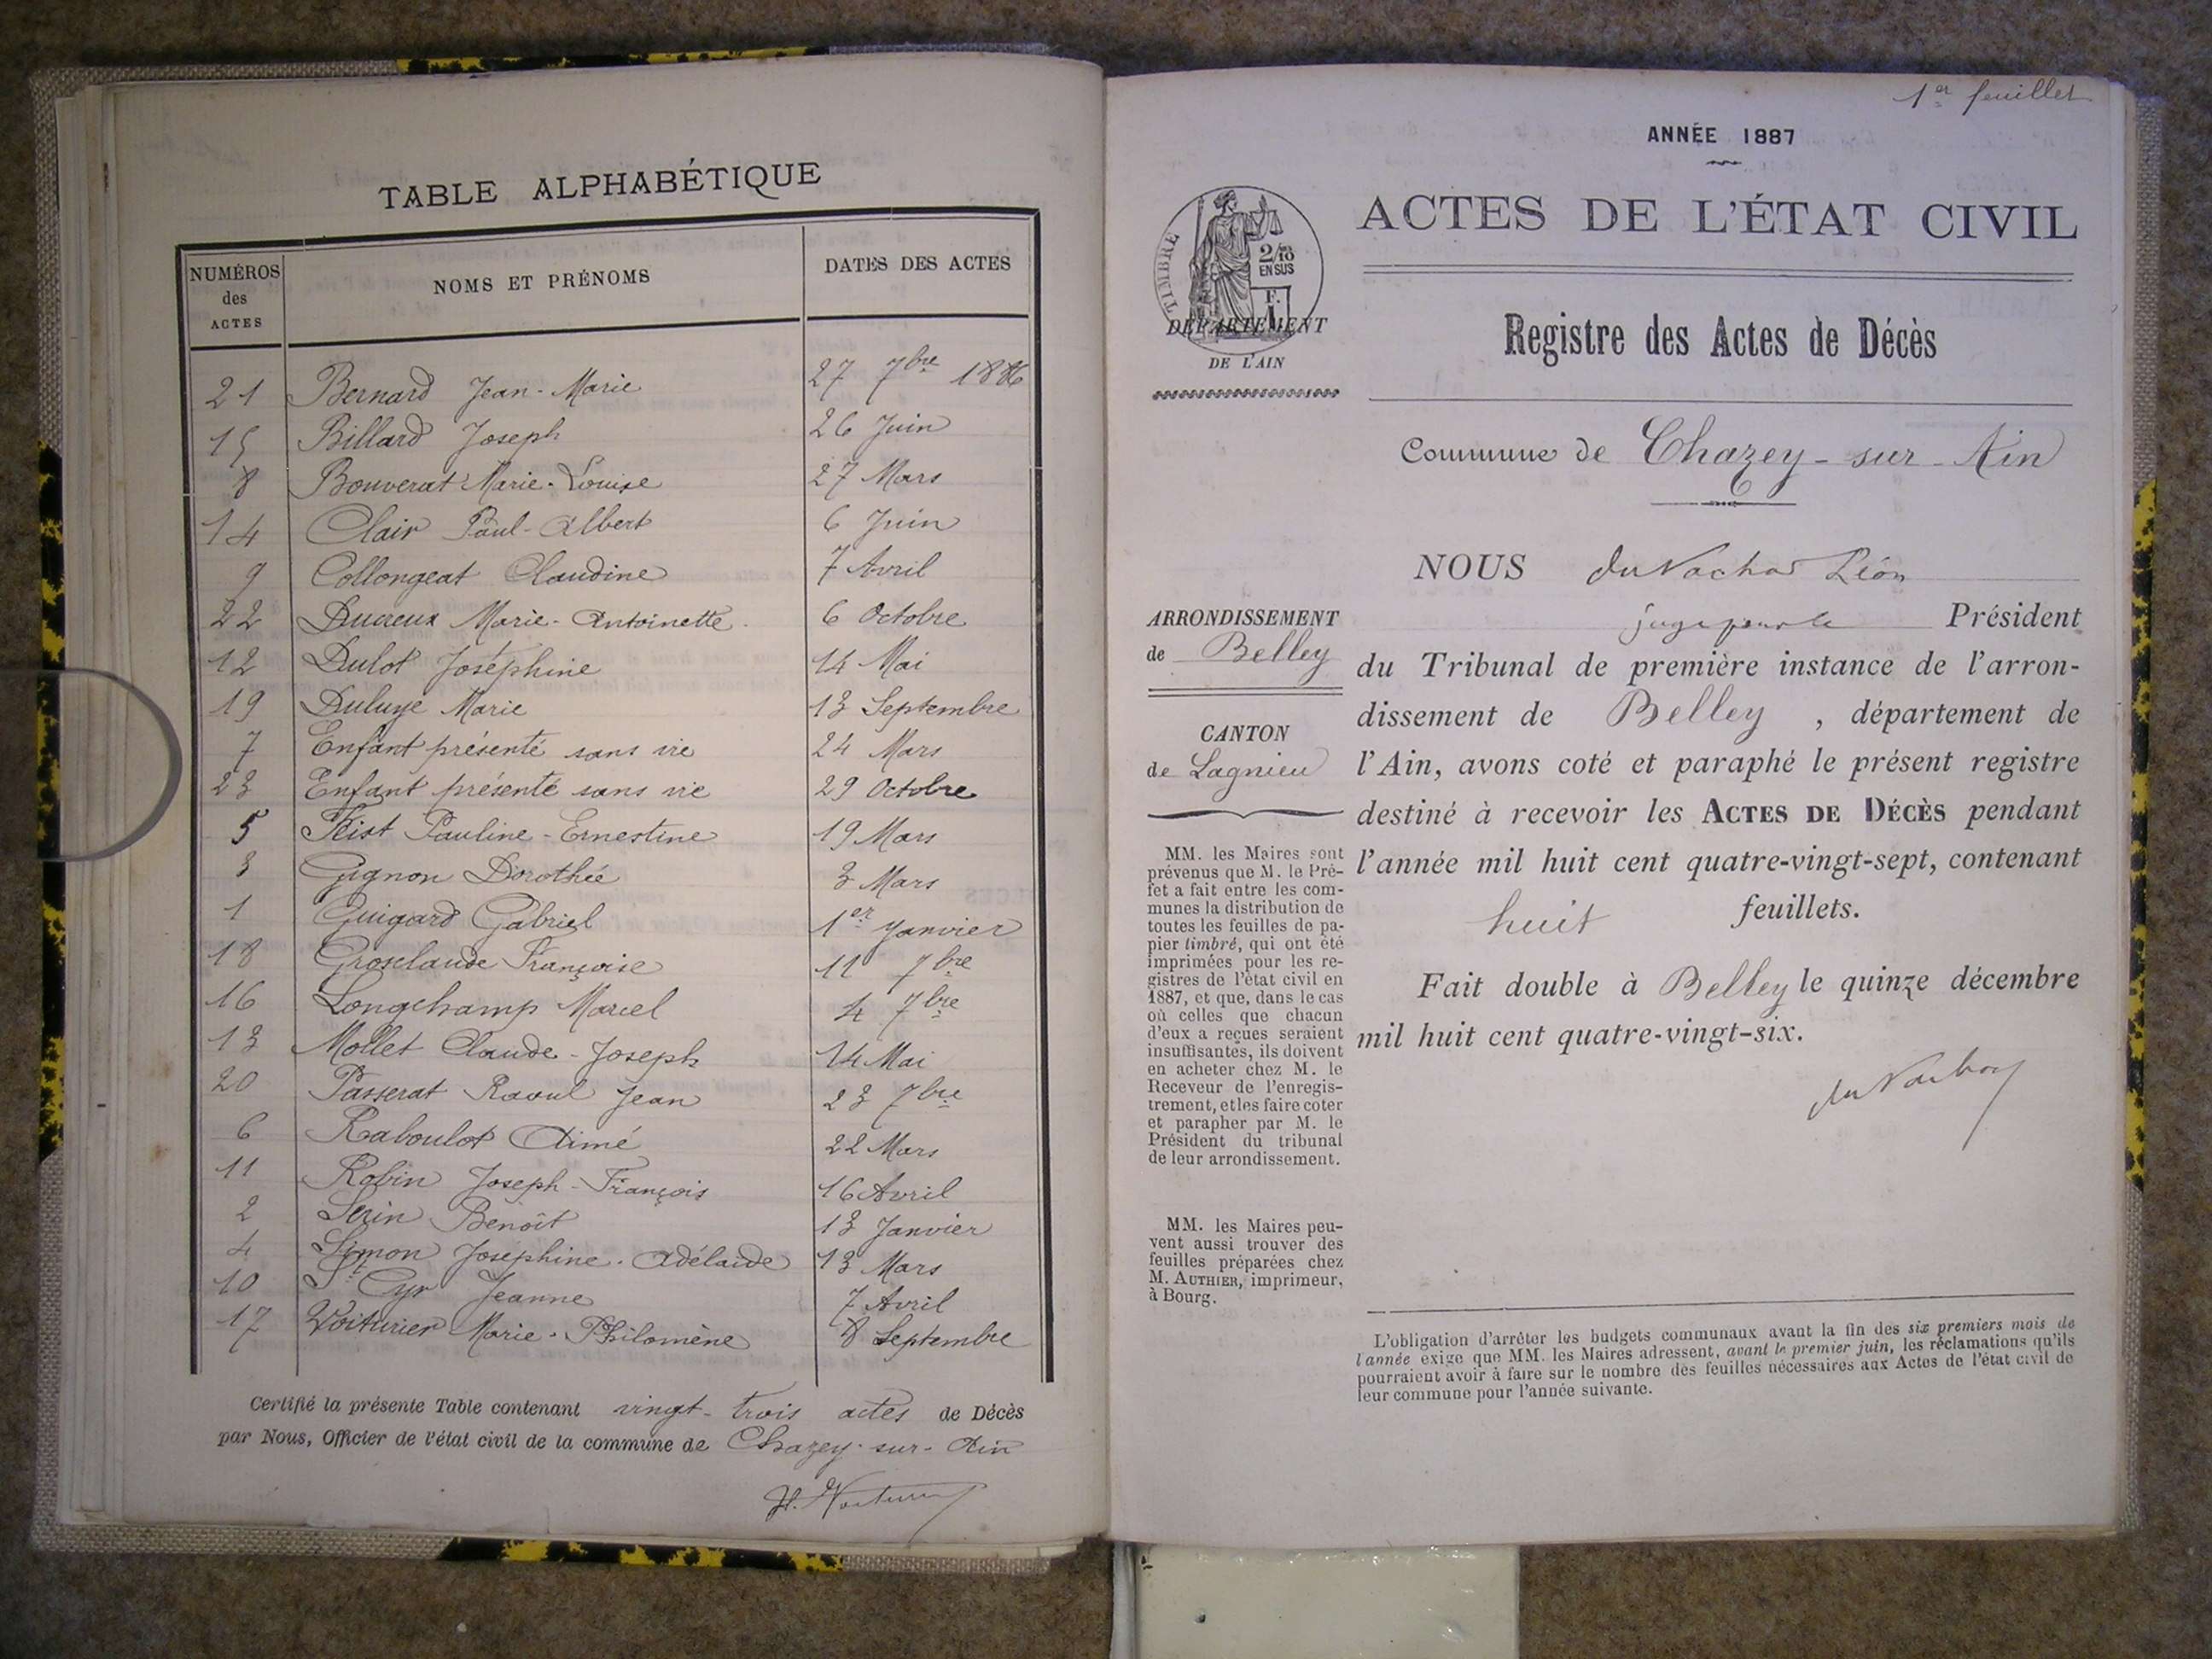 TABLE ALPHABÉTIQUE
NUMÉROS des ACTES NOMS ET PRÉNOMS DATES DES ACTES
21 Bernard Jean-Marie 27 7bre 1886
15 Billard Joseph 26 Juin
8 Bouverat Marie-Louise 27 Mars
14 Clair Paul-Albert 6 Juin
9 Collongeat Claudine 7 Avril
22 Ducreux Marie-Antoinette 6 Octobre
12 Dulot Joséphine 14 Mai
19 Duluye Marie 13 Septembre
7 Enfant présenté sans vie 24 Mars
23 Enfant présenté sans vie 29 Octobre
5 Pauline-Ernestine 19 Mars
3 Gignon Dorothée 3 Mars
1 Guigard Gabriel 1er Janvier
18 Grosclaude Françoise 11 7bre
16 Longchamp Marcel 4 7bre
13 Mollet Claude-Joseph 14 Mai
20 Passerat Raoul Jean 23 7bre
6 Raboulot Aimé 22 Mars
11 Robin Joseph-François 16 Avril
2 Serin Benoît 13 Janvier
4 Simon Joséphine-Adélaide 13 Mars
10 St Cyr Jeanne 7 Avril
17 Voiturier Marie-Philomène 8 Septembre
Certifié la présente Table contenant vingt-trois actes de Décès
par Nous, Officier de l'état civil de la commune de Chazey-sur-Ain
1er feuillet
ANNÉE 1887
ACTES DE L'ÉTAT CIVIL
TIMBRE
2/10
EN SUS
F.
DÉPARTEMENT
DE L'AIN
Registre des Actes de Décès
Commune de Chazey-sur-Ain
NOUS Léon
juge pour le Président
du Tribunal de première instance de l'arron-
dissement de Belley, département de
l'Ain, avons coté et paraphé le présent registre
destiné à recevoir les ACTES DE DÉCÈS pendant
l'année mil huit cent quatre-vingt-sept, contenant
huit feuillets.
Fait double à Belley le quinze décembre
mil huit cent quatre-vingt-six.
ARRONDISSEMENT
de Belley
CANTON
de Lagnieu
MM. les Maires sont
prévenus que M. le Pré-
fet a fait entre les com-
munes la distribution de
toutes les feuilles de pa-
pier timbré, qui ont été
imprimées pour les re-
gistres de l'état civil en
1887, et que, dans le cas
où celles que chacun
d'eux a reçues seraient
insuffisantes, ils doivent
en acheter chez M. le
Receveur de l'enregis-
trement, et les faire coter
et parapher par M. le
Président du tribunal
de leur arrondissement.
MM. les Maires peu-
vent aussi trouver des
feuilles préparées chez
M. AUTHIER, imprimeur,
à Bourg.
L'obligation d'arrêter les budgets communaux avant la fin des six premiers mois de
l'année exige que MM. les Maires adressent, avant le premier juin, les réclamations qu'ils
pourraient avoir à faire sur le nombre des feuilles nécessaires aux Actes de l'état civil de
leur commune pour l'année suivante.